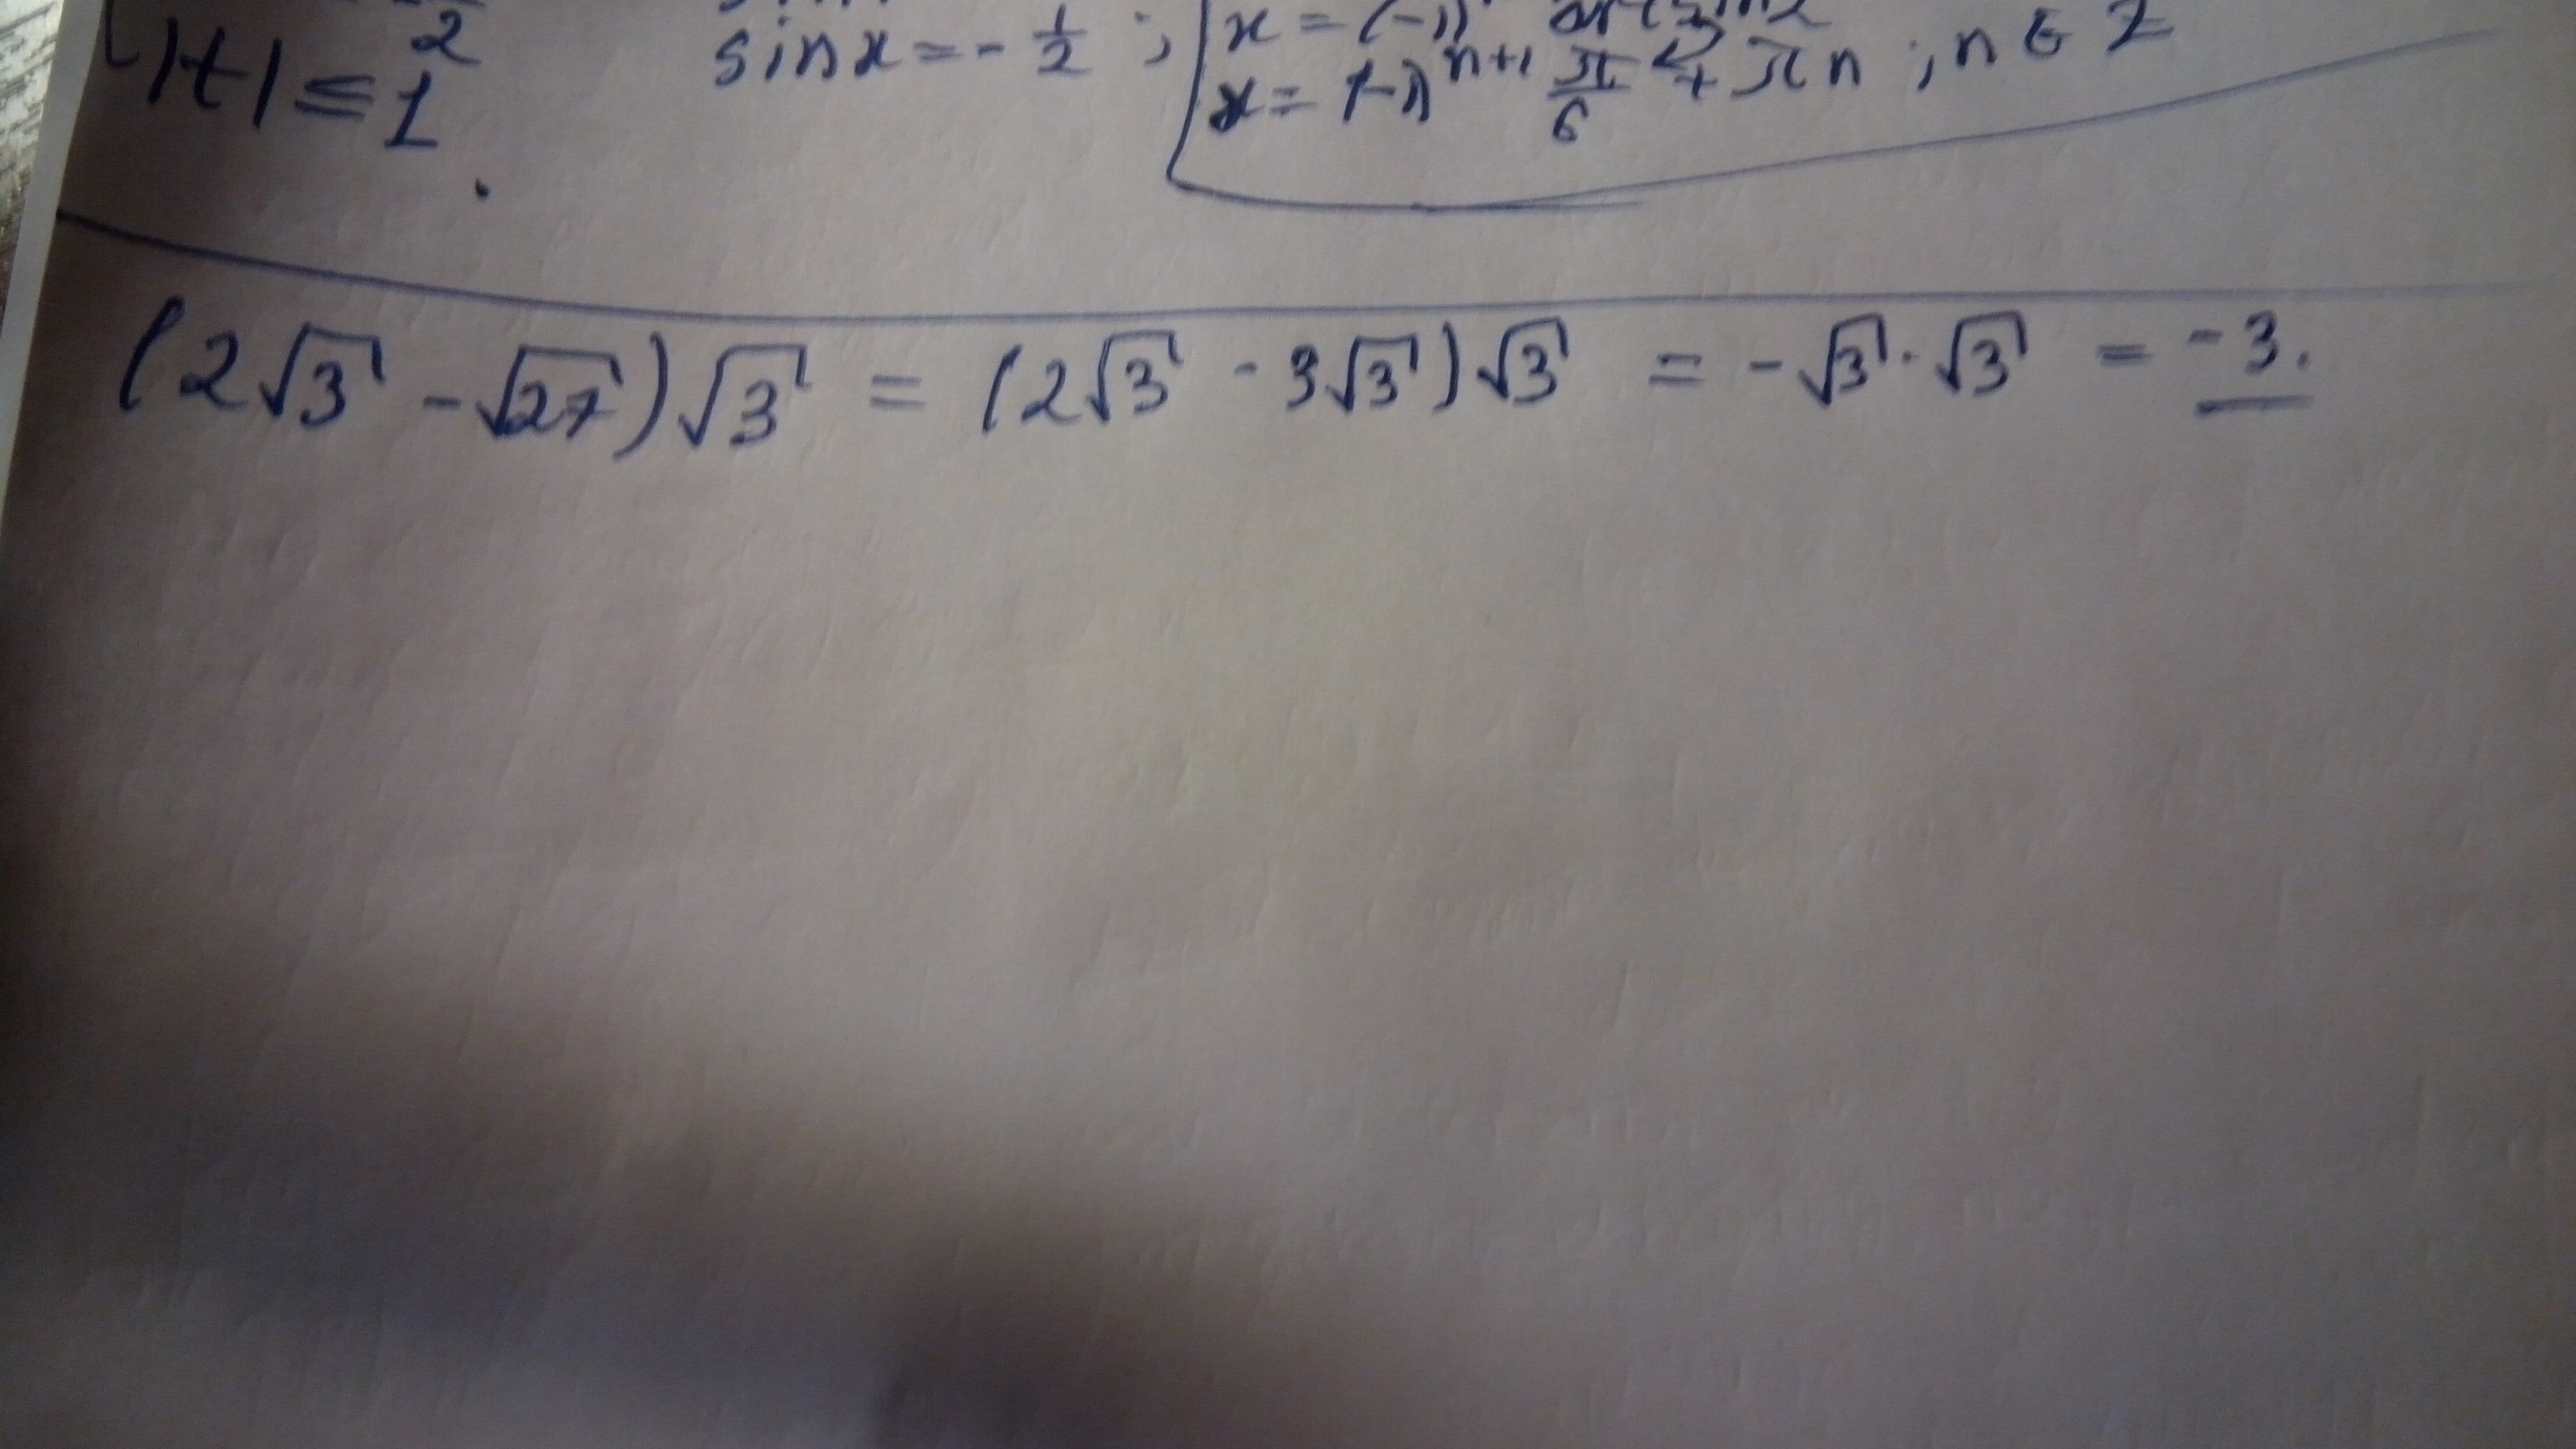 2
|t| ≤ 1
sinx = - 1/2 ; x = (-1)
x = (-1)^{n+1} π/6 + πn ; n ∈ Z
(2√3 - √27)√3 = (2√3 - 3√3)√3 = -√3 · √3 = -3.